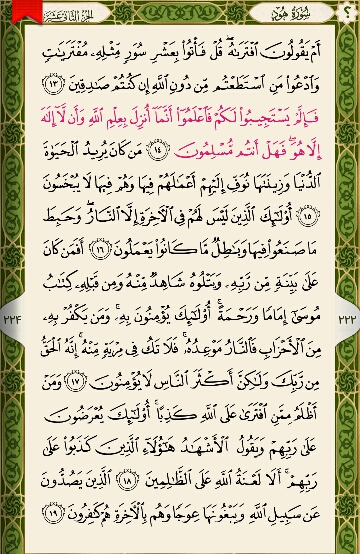 الجزء الثاني عشر
سورة هود
؟
أَمْ يَقُولُونَ ٱفْتَرَىٰهُ ۖ قُلْ فَأْتُوا۟ بِعَشْرِ سُوَرٍ مِّثْلِهِۦ مُفْتَرَيَٰتٍ
وَٱدْعُوا۟ مَنِ ٱسْتَطَعْتُم مِّن دُونِ ٱللَّهِ إِن كُنتُمْ صَٰدِقِينَ ١٣
فَإِلَّمْ يَسْتَجِيبُوا۟ لَكُمْ فَٱعْلَمُوٓا۟ أَنَّمَآ أُنزِلَ بِعِلْمِ ٱللَّهِ وَأَن لَّآ إِلَٰهَ
إِلَّا هُوَ ۖ فَهَلْ أَنتُم مُّسْلِمُونَ ١٤ مَن كَانَ يُرِيدُ ٱلْحَيَوٰةَ
ٱلدُّنْيَا وَزِينَتَهَا نُوَفِّ إِلَيْهِمْ أَعْمَٰلَهُمْ فِيهَا وَهُمْ فِيهَا لَا يُبْخَسُونَ
١٥ أُو۟لَٰٓئِكَ ٱلَّذِينَ لَيْسَ لَهُمْ فِى ٱلْءَاخِرَةِ إِلَّا ٱلنَّارُ ۖ وَحَبِطَ
مَا صَنَعُوا۟ فِيهَا وَبَٰطِلٌ مَّا كَانُوا۟ يَعْمَلُونَ ١٦ أَفَمَن كَانَ
عَلَىٰ بَيِّنَةٍ مِّن رَّبِّهِۦ وَيَتْلُوهُ شَاهِدٌ مِّنْهُ وَمِن قَبْلِهِۦ كِتَٰبُ
مُوسَىٰٓ إِمَامًا وَرَحْمَةً ۚ أُو۟لَٰٓئِكَ يُؤْمِنُونَ بِهِۦ ۚ وَمَن يَكْفُرْ بِهِۦ
مِنَ ٱلْأَحْزَابِ فَٱلنَّارُ مَوْعِدُهُۥ ۚ فَلَا تَكُ فِى مِرْيَةٍ مِّنْهُ ۚ إِنَّهُ ٱلْحَقُّ
مِن رَّبِّكَ وَلَٰكِنَّ أَكْثَرَ ٱلنَّاسِ لَا يُؤْمِنُونَ ١٧ وَمَنْ
أَظْلَمُ مِمَّنِ ٱفْتَرَىٰ عَلَى ٱللَّهِ كَذِبًا ۚ أُو۟لَٰٓئِكَ يُعْرَضُونَ
عَلَىٰ رَبِّهِمْ وَيَقُولُ ٱلْأَشْهَٰدُ هَٰٓؤُلَآءِ ٱلَّذِينَ كَذَبُوا۟ عَلَىٰ
رَبِّهِمْ ۚ أَلَا لَعْنَةُ ٱللَّهِ عَلَى ٱلظَّٰلِمِينَ ١٨ ٱلَّذِينَ يَصُدُّونَ
عَن سَبِيلِ ٱللَّهِ وَيَبْغُونَهَا عِوَجًا وَهُم بِٱلْءَاخِرَةِ هُمْ كَٰفِرُونَ ١٩
٢٢٢
٢٢٤